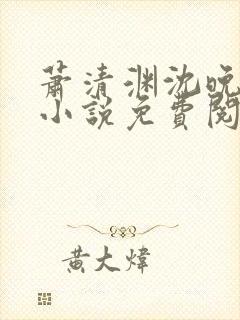 萧清渊沈晚
小说免费阅
黄大炜